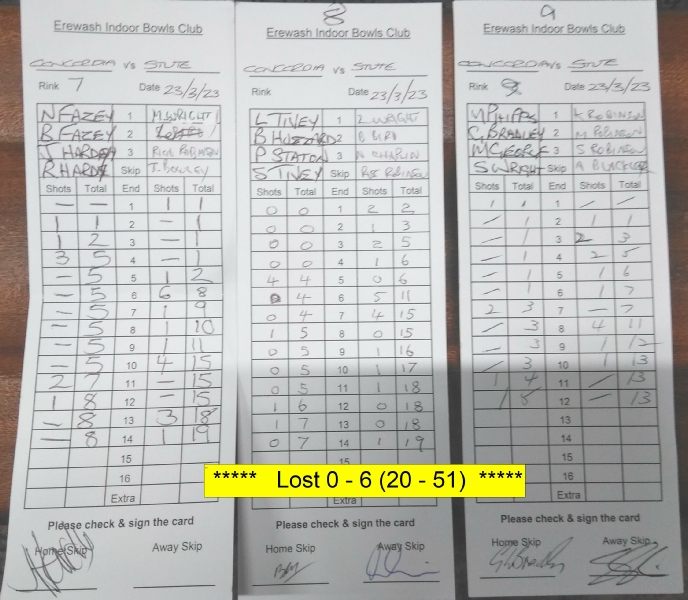 Erewash Indoor Bowls Club
CONCORDIA vs STUTE
Rink 7 Date 23/3/23
N FAZEY 1 M. WRIGHT
B FAZEY 2
T HARDY 3 RICH ROBINSON
R HARDY Skip T. BEWLEY
Shots Total End Shots Total
— — 1 1 1
1 1 2 — 1
1 2 3 — 1
3 5 4 — 1
— 5 5 1 2
— 5 6 6 8
— 5 7 1 9
— 5 8 1 10
— 5 9 1 11
— 5 10 4 15
2 7 11 — 15
1 8 12 — 15
— 8 13 3 18
— 8 14 1 19
15
16
Extra
Please check & sign the card
Home Skip Away Skip
8
Erewash Indoor Bowls Club
CONCORDIA vs STUTE
Rink Date 23/3/23
L TIVEY 1 WRIGHT
B HUZZARD 2
P STATON 3 CHAPLIN
S TIVEY Skip ROBINSON
Shots Total End Shots Total
0 0 1 2 2
0 0 2 1 3
0 0 3 2 5
0 0 4 1 6
4 4 5 0 6
0 4 6 5 11
0 4 7 4 15
1 5 8 0 15
0 5 9 1 16
0 5 10 1 17
0 5 11 1 18
1 6 12 0 18
1 7 13 0 18
0 7 14 1 19
15
Extra
Please check & sign the card
Home Skip Away Skip
9
Erewash Indoor Bowls Club
CONCORDIA vs STUTE
Rink 9 Date 23/3/23
M PHIPPS 1 K ROBINSON
C BRADLEY 2 M ROBINSON
M C GEORGE 3 S ROBINSON
S WRIGHT Skip A
Shots Total End Shots Total
1 1 1 — —
— 1 2 1 1
— 1 3 2 3
— 1 4 2 5
— 1 5 1 6
— 1 6 1 7
2 3 7 — 7
— 3 8 4 11
— 3 9 1 12
— 3 10 1 13
1 4 11 — 13
1 5 12 — 13
13
14
15
16
Extra
Please check & sign the card
Home Skip Away Skip
***** Lost 0 - 6 (20 - 51) *****